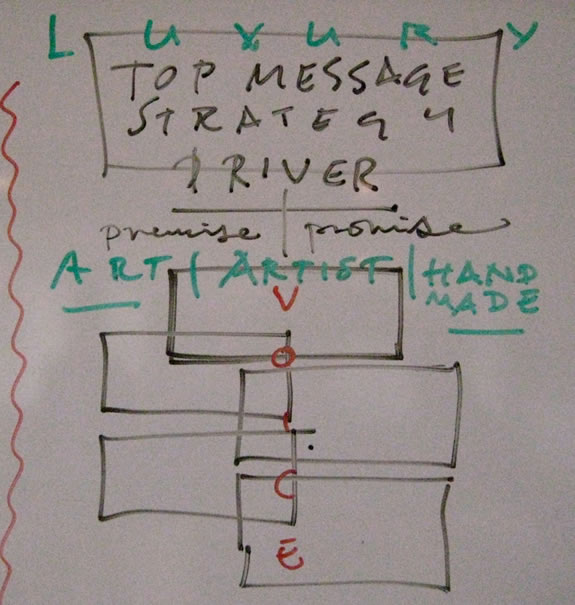 LUXURY
TOP MESSAGE
STRATEGY
DRIVER
premise | promise
ART | ARTIST | HAND
MADE
V
O
I
C
E